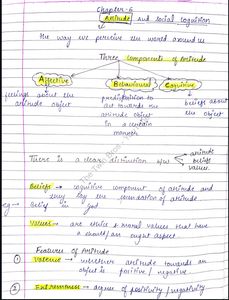 Chapter-6
Attitude and social cognition
The way we perceive the world around us
Three components of Attitude
Affective Behavioural Cognitive
feelings about the attitude object
predisposition to act towards the attitude object in a certain manner
beliefs about the object
There is a clear distinction b/w attitude beliefs values
Beliefs → cognitive component of attitude and
they lay the foundation of attitude.
eg → Belief in God
Values → are ethics & moral values that have
a should/an ought aspect
Features of Attitude
① Valence → whether attitude towards an
object is positive / negative
② Extremeness → degree of positivity/negativity